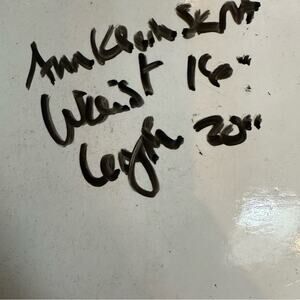 Ann Klein Skirt
Waist 16"
Length 20"